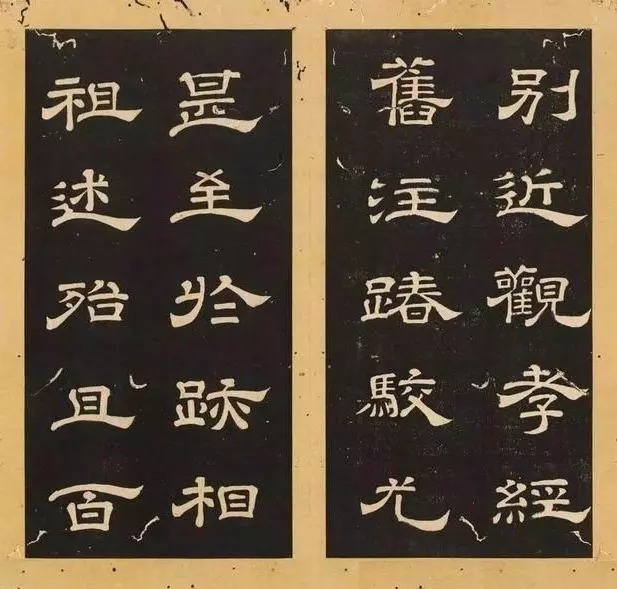 别近觀孝經
舊注踳駮尤
是至於跡相
祖述殆且百